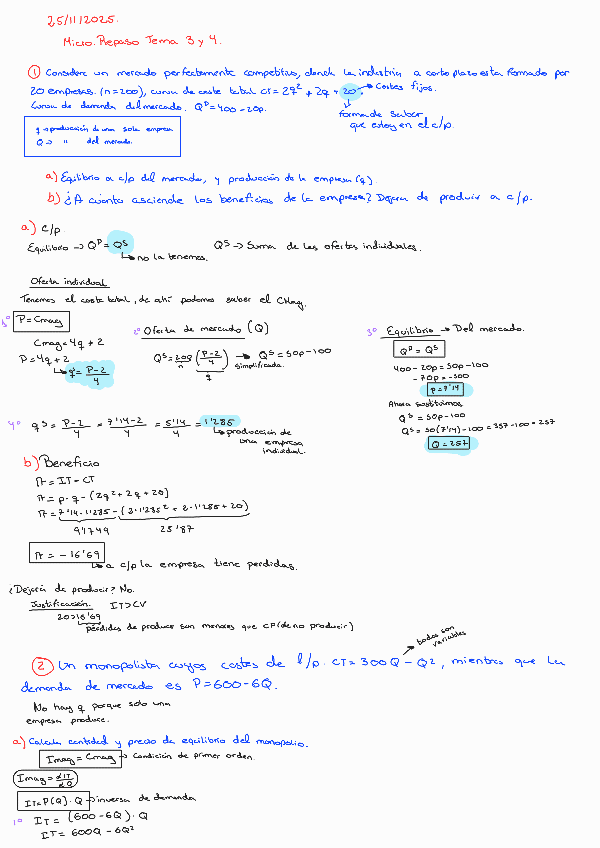 25/11/2025.
Micro. Repaso Tema 3 y 4.
① Considere un mercado perfectamente competitivo, donde la industria a corto plazo esta formado por
20 empresas. (n=200), curva de coste total CT= 2q² + 2q + 20 → Costes fijos.
Curva de demanda del mercado. Qᴰ = 400 - 20p.
forma de saber
que estoy en el c/p.
q → producción de una sola empresa
Q → " del mercado.
a) Equilibrio a c/p del mercado, y producción de la empresa (q)
b) ¿A cuanto asciende los beneficios de la empresa? Dejara de producir a c/p.
a) c/p.
Equilibrio → Qᴰ = Qˢ
no la tenemos.
Qˢ → Suma de las ofertas individuales.
Oferta individual
Tenemos el coste total, de ahí podemos saber el CMag.
P = Cmag
Cmag = 4q + 2
P = 4q + 2
q = P-2/4
2º Oferta de mercado (Q)
Qˢ = 200 (P-2/4) → Qˢ = 50p - 100
n
q
simplificada.
3º Equilibrio → Del mercado.
Qᴰ = Qˢ
400 - 20p = 50p - 100
- 70p = - 500
p = 7'14
Ahora sustituimos
Qˢ = 50p - 100
Qˢ = 50(7'14) - 100 = 357 - 100 = 257
Q = 257
4º qˢ = P-2/4 = 7'14-2/4 = 5'14/4 = 1'285
producción de
una empresa
individual.
b) Beneficio
π = IT - CT
π = p·q - (2q² + 2q + 20)
π = 7'14·1'285 - (2·1'285² + 2·1'285 + 20)
9'1749
25'87
π = - 16'69
a c/p la empresa tiene perdidas.
¿Dejaría de producir? No.
Justificación. IT > CV
20 > 16'69
pérdidas de producir son menores que CF (de no producir)
② Un monopolista cuyos costes de l/p. CT = 300Q - Q², mientras que la
todos son
variables
demanda de mercado es P = 600 - 6Q.
No hay q porque solo una
empresa produce.
a) Calcula cantidad y precio de equilibrio del monopolio.
Imag = Cmag → Condición de primer orden.
Imag = ∂IT/∂Q
IT = P(Q) · Q → inversa de demanda
1º IT = (600 - 6Q) · Q
IT = 600Q - 6Q²